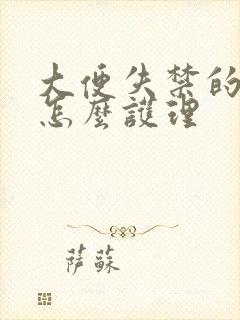 大便失禁的
怎麼護理
萨蘇